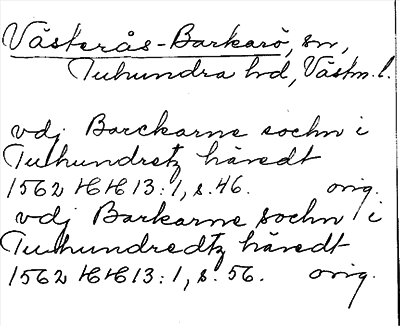 Västerås-Barkarö, sn,
Tuhundra hd, Västm. l.
vdj Barckarne sochn i
Tuhundretz häredt
1562 HH 13:1, s. 46. orig.
vdj Barkarne sochn i
Tuhundredtz häredt
1562 HH 13:1, s. 56. orig.